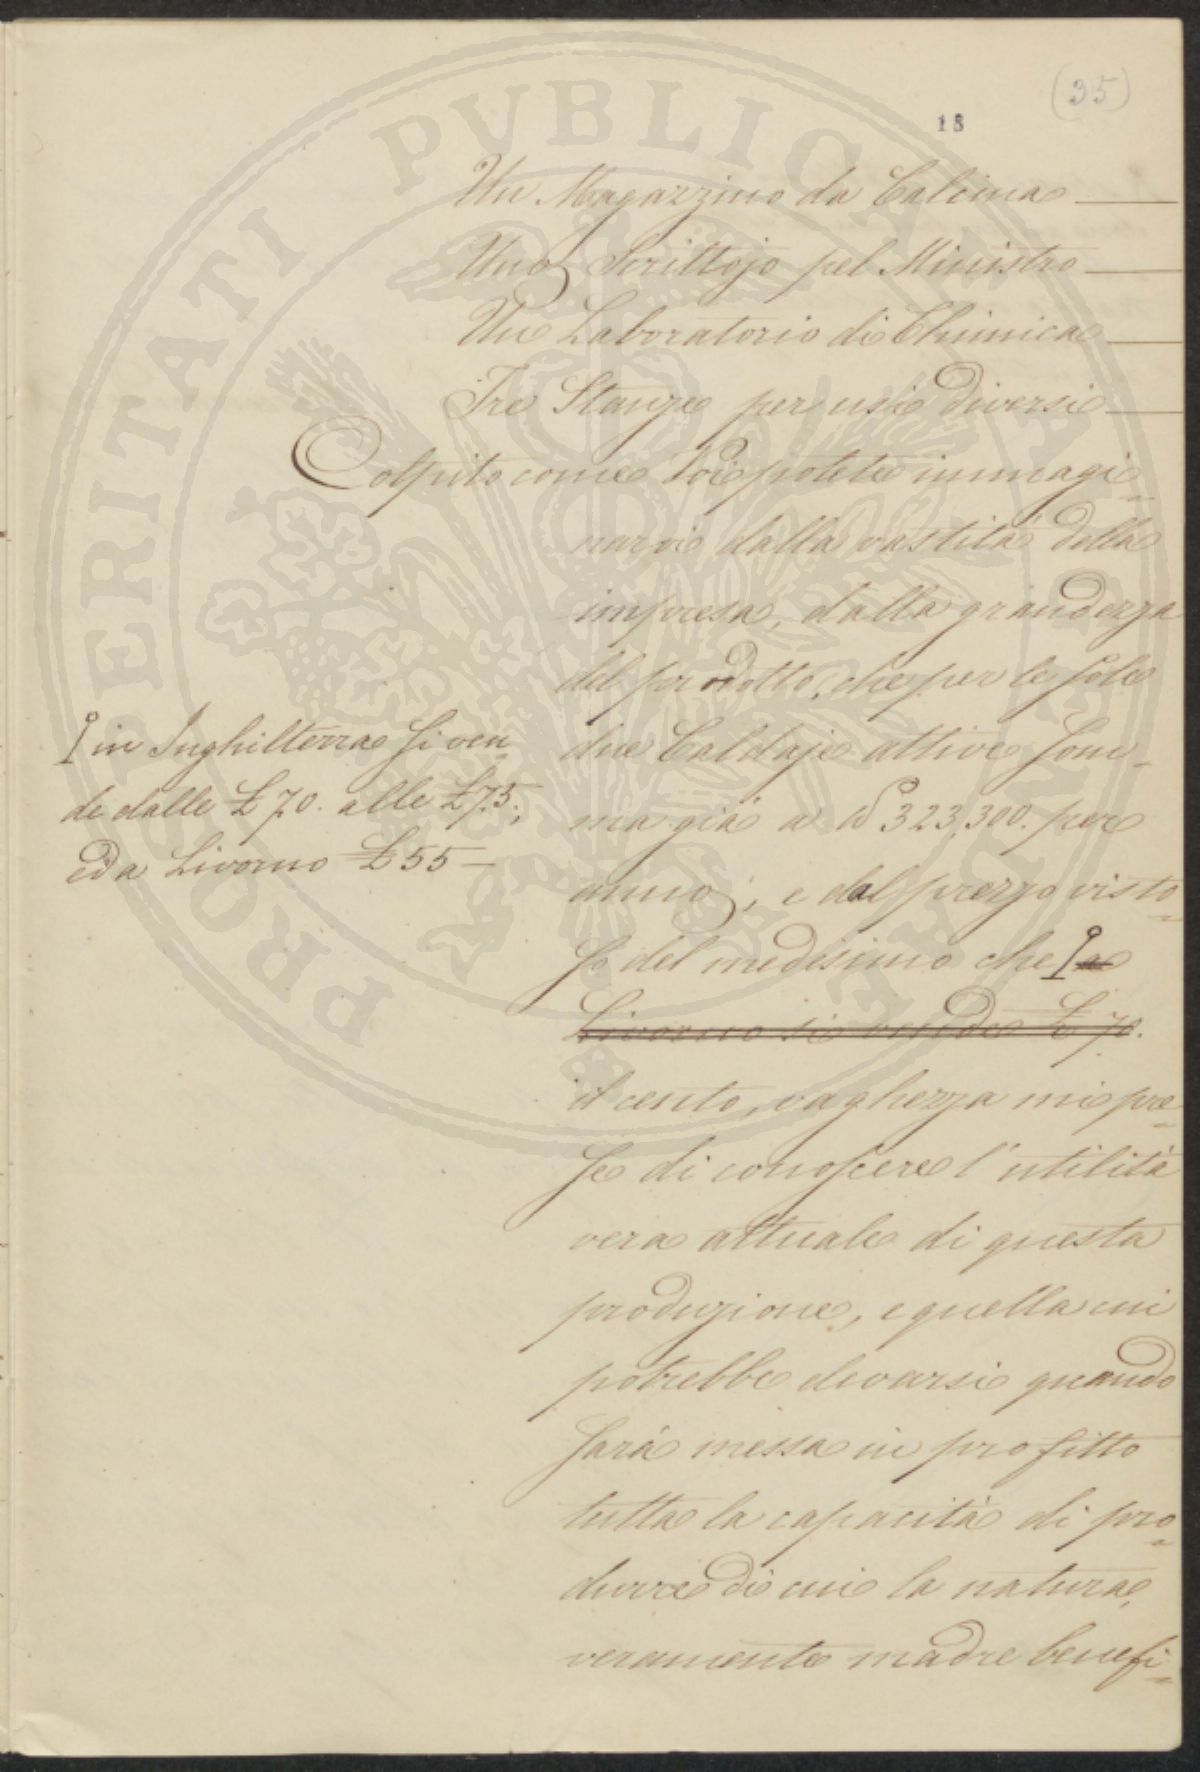 (35)
18
Un Magazzino da Calcina
Uno Scrittojo pel Ministro
Un Laboratorio di Chimica
Tre Stanze per usi diversi
Colpito come Voi potete immagi=
narvi dalla vastità della
impresa, dalla grandezza
del prodotto, che per le sole
due Caldaje attive som=
ma già a 323,300. per
anno, e dal prezzo visto=
so del medesimo che a
Livorno si vende £ 70.
il cento, vaghezza mi pre=
se di conoscere l'utilità
vera attuale di questa
produzione, e quella cui
potrebbe elevarsi quando
sarà messa in profitto
tutta la capacità di pro=
durre di cui la natura,
veramente madre benefi=
in Inghilterra si ven=
de dalle £ 70. alle £ 75.,
ed a Livorno £ 55 —
PROSPERITATI PUBLICAE AUGENDAE